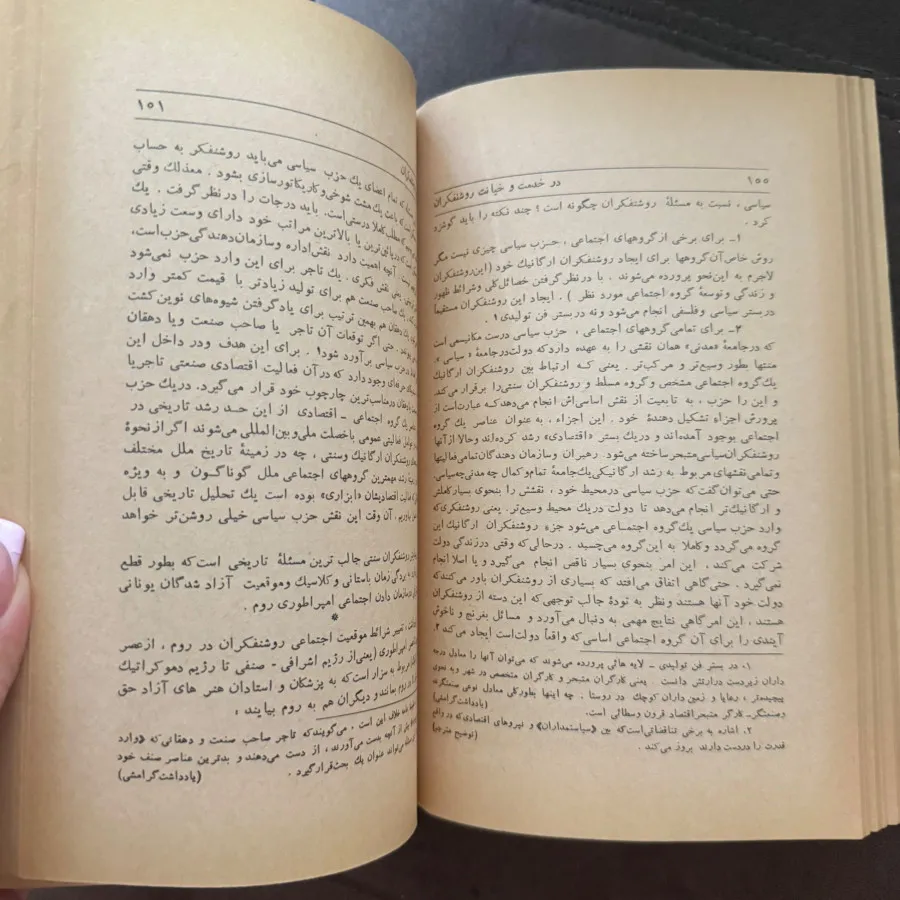 ۱۰۰
در خدمت و خیانت روشنفکران
سیاسی ، نسبت به مسئلهٔ روشنفکران چگونه است ؛ چند نکته را باید گوشزد
کرد .
۱ـ برای برخی از گروههای اجتماعی ، حزب سیاسی چیزی نیست مگر
روش خاص آن گروهها برای ایجاد روشنفکران ارگانیک خود (این روشنفکران
لاجرم به این‌نحو پرورده می‌شوند . با در نظر گرفتن خصائل کلی و شرائط ظهور
و زندگی و توسعهٔ گروه اجتماعی مورد نظر ) . ایجاد این روشنفکران مستقیماً
در بستر سیاسی و فلسفی انجام می‌شود و نه در بستر فن تولیدی۱ .
۲ـ برای تمامی گروههای اجتماعی ، حزب سیاسی درست مکانیسمی است
که در جامعهٔ «مدنی» همان نقشی را به عهده دارد که دولت در جامعهٔ « سیاسی » .
منتها بطور وسیع‌تر و مرکب‌تر . یعنی که ارتباط بین روشنفکران ارگانیک
یک گروه اجتماعی مشخص و گروه مسلط و روشنفکران سنتی را برقرار می‌کند.
و این را حزب ، به تابعیت از نقش اساسی‌اش انجام می‌دهد که عبارت است از
پرورش اجزاء تشکیل دهندهٔ خود . این اجزاء ، به عنوان عناصر یک گروه
اجتماعی بوجود آمده‌اند و در یک بستر «اقتصادی» رشد کرده‌اند و حالا از آنها
روشنفکران سیاسی متبحر ساخته می‌شود . رهبران و سازمان دهندگان تمامی فعالیتها
و تمامی نقشهای مربوط به رشد ارگانیکی یک جامعهٔ تمام و کمال چه مدنی چه سیاسی.
حتی می‌توان گفت که حزب سیاسی در محیط خود ، نقشش را بنحوی بسیار کاملتر
و ارگانیک‌تر انجام می‌دهد تا دولت در یک محیط وسیع‌تر. یعنی روشنفکری که
وارد حزب سیاسی یک گروه اجتماعی می‌شود جزء روشنفکران ارگانیک آن
گروه می‌گردد و کاملا به این گروه می‌چسبد . در حالی که وقتی در زندگی دولت
شرکت می‌کند ، این امر بنحوی بسیار ناقص انجام می‌گیرد و یا اصلا انجام
نمی‌گیرد . حتی گاهی اتفاق می‌افتد که بسیاری از روشنفکران باور می‌کنند که
دولت خود آنها هستند و نظر به تودهٔ جالب توجهی که این دسته از روشنفکران
هستند ، این امر گاهی نتایج مهمی به دنبال می‌آورد و مسائل بغرنج و ناخوش
آیندی را برای آن گروه اجتماعی اساسی که واقعاً دولت است ایجاد می‌کند۲ .
۱. در بستر فن تولیدی ـ لایه هائی پرورده می‌شوند که می‌توان آنها را معادل درجه
داران زیردست در ارتش دانست . یعنی کارگران متبحر و کارگران متخصص در شهر و به نحوی
پیچیده‌تر ، رعایا و زمین داران کوچک در روستا . چه اینها بطور کلی معادل نوعی صنعتگرند
و صنعتگر ـ کارگر متبحر اقتصاد قرون وسطائی است. (یادداشت گرامشی)
۲. اشاره به برخی تناقضاتی است که بین «سیاستمداران» و نیروهای اقتصادی که در واقع
قدرت را در دست دارند بروز می‌کند . (توضیح مترجم)
۱۰۱
که تمام اعضای یک حزب سیاسی می‌باید روشنفکر به حساب
که باعث یک مشت شوخی و کاریکاتور سازی بشود . معذلک وقتی
که مطلب کاملا درستی است. باید درجات را در نظر گرفت . یک
پائینی‌ترین یا بالاترین مراتب خود دارای وسعت زیادی
آنچه اهمیت دارد نقش اداره و سازمان‌دهندگی حزب است،
یعنی نقش فکری . یک تاجر برای این وارد حزب نمی‌شود
یک صاحب صنعت هم برای تولید زیادتر با قیمت کمتر وارد
یک دهقان هم بهمین ترتیب برای یادگرفتن شیوه‌های نوین کشت
حتی اگر توقعات آن تاجر یا صاحب صنعت و یا دهقان
حزب سیاسی برآورد شود۱ . برای این هدف و در داخل این
حرفه‌ای وجود دارد که در آن فعالیت اقتصادی صنعتی تاجر یا
دهقان در مناسب‌ترین چارچوب خود قرار می‌گیرد. در یک حزب
یک گروه اجتماعی ـ اقتصادی از این حد رشد تاریخی در
فعالیتی عمومی با خصلت ملی و بین المللی می‌شوند اگر از نحوهٔ
روشنفکران ارگانیک و سنتی ، چه در زمینهٔ تاریخ ملل مختلف
رشد مهمترین گروههای اجتماعی ملل گوناگون و به ویژه
فعالیت اقتصادیشان «ابزاری» بوده است یک تحلیل تاریخی قابل
بیاوریم ، آن وقت این نقش حزب سیاسی خیلی روشن‌تر خواهد
روشنفکران سنتی جالب ترین مسئلهٔ تاریخی است که بطور قطع
بردگی زمان باستانی و کلاسیک و موقعیت آزاد شدگان یونانی
سازمان دادن اجتماعی امپراطوری روم .
*
تغییر شرائط موقعیت اجتماعی روشنفکران در روم ، از عصر
امپراطوری (یعنی از رژیم اشرافی - صنفی تا رژیم دموکراتیک
مربوط به سزار است که به پزشکان و استادان هنر های آزاد حق
در روم بمانند و دیگران هم به روم بیایند ؛
خلاف این است ، می‌گویند که تاجر صاحب صنعت و دهقانی که «وارد
بیش از آنچه بدست می‌آورند ، از دست می‌دهند و بدترین عناصر صنف خود
می‌تواند عنوان یک بحث قرار گیرد . (یادداشت گرامشی)